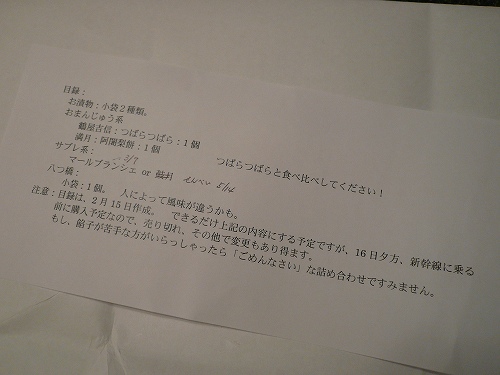 目録：
お漬物：小袋２種類。
おまんじゅう系
鶴屋吉信：つばらつばら：１個
満月：阿闍梨餅：１個　つばらつばらと食べ比べしてください！
サブレ系： 3/7
マールブランシェ or
八つ橋：
小袋：１個。　人によって風味が違うかも。
注意：目録は、２月１５日作成。　できるだけ上記の内容にする予定ですが、１６日夕方、新幹線に乗る
前に購入予定なので、売り切れ、その他で変更もあり得ます。
もし、餡子が苦手な方がいらっしゃったら「ごめんなさい」な詰め合わせですみません。